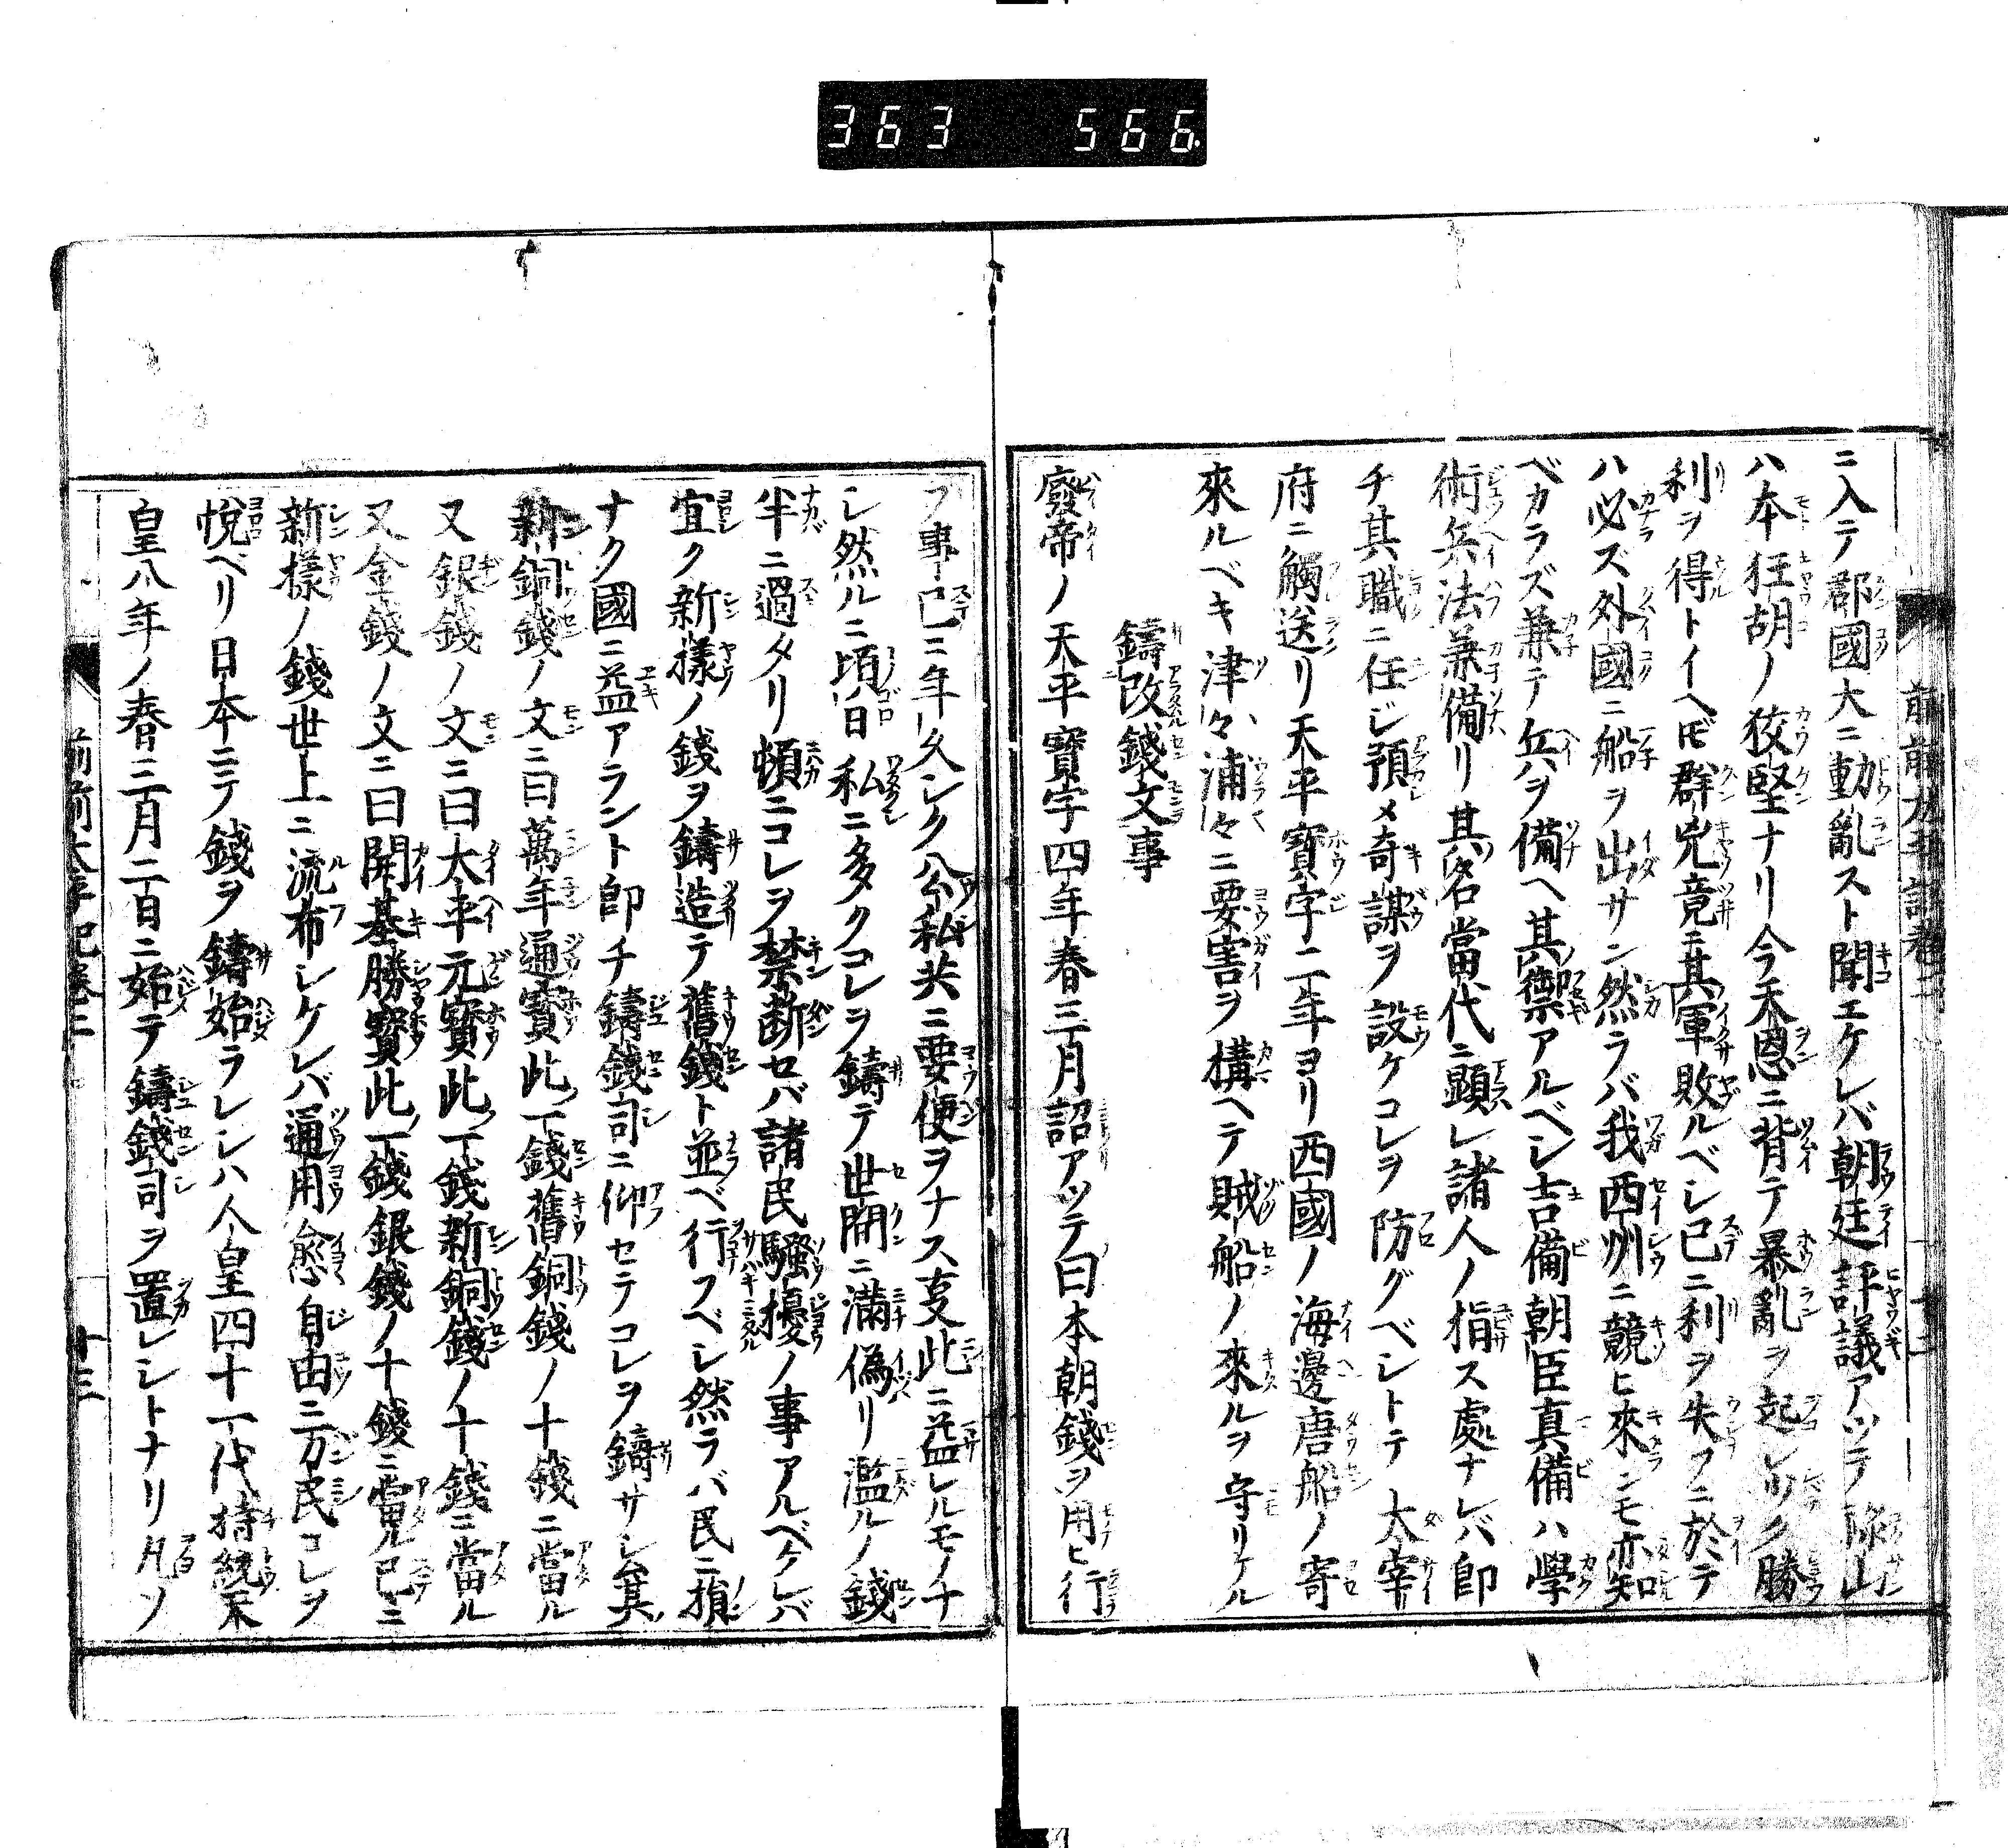 363 566
ニ入テ郡國大ニ動亂スト聞エケレバ朝廷評議アツテ祿山
ハ本狂胡ノ狡堅ナリ今天恩ニ背テ暴亂ヲ起シツク勝
利ヲ得トイヘ𪜈群兇竟ニ其軍敗ルベシ已ニ利ヲ失フニ於テ
ハ必ズ外國ニ船ヲ出サン然ラバ我西州ニ競ヒ來ンモ亦知
ベカラズ兼テ兵ヲ備ヘ其禦アルベシ吉備朝臣真備ハ學
術兵法兼備リ其名當代ニ顕レ諸人ノ指ス處ナレバ即
チ其職ニ任ジ預メ奇謀ヲ設ケコレヲ防グベシトテ太宰
府ニ觸送リ天平寶字二年ヨリ西國ノ海邊唐船ノ寄
來ルベキ津々浦々ニ要害ヲ構ヘテ賊船ノ來ルヲ守リケル
鑄改錢文事
廢帝ノ天平寶字四年春三月詔アツテ曰本朝錢ヲ用ヒ行
フ事已ニ年久シク公私共ニ要便ヲナス叓此ニ益レルモノナ
シ然ルニ頃日私ニ多クコレヲ鑄テ世間ニ滿偽リ濫ルノ錢
半ニ過タリ頓ニコレヲ禁断セバ諸民騷擾ノ事アルベケレバ
宜ク新樣ノ錢ヲ鑄造テ舊錢ト並ベ行フベシ然ラバ民ニ損
ナク國ニ益アラント即チ鑄錢司ニ仰セテコレヲ鑄サシム其
新銅錢ノ文ニ曰萬年通寶此一錢舊銅錢ノ十錢ニ當ル
又銀錢ノ文ニ曰太平元寶此一錢新銅錢ノ十錢ニ當ル
又金錢ノ文ニ曰開基勝寶此一錢銀錢ノ十錢ニ當ル已ニ
新樣ノ錢世上ニ流布シケレバ通用愈自由ニ万民コレヲ
悅ベリ日本ニテ錢ヲ鑄始ラレシハ人皇四十一代持統天
皇八年ノ春三月二日ニ始テ鑄錢司ヲ置レシトナリ凡ソ
前前太平記卷二 十三